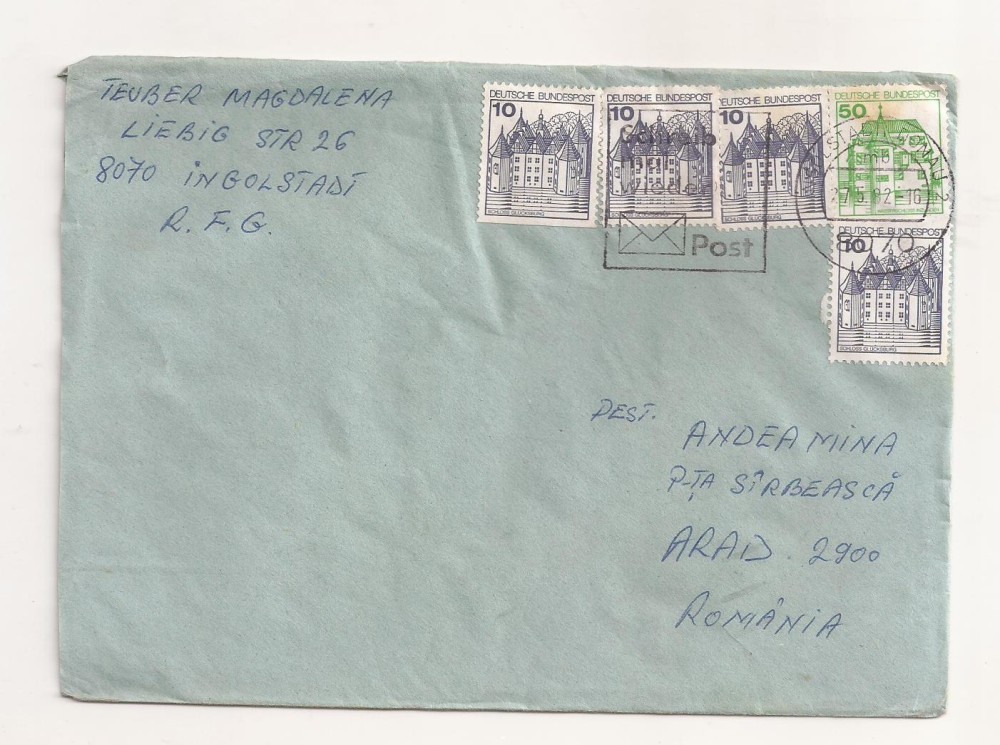 TEUBER MAGDALENA
LIEBIG STR 26
8070 INGOLSTADT
R.F.G.
10 DEUTSCHE BUNDESPOST
SCHLOSS GLÜCKSBURG
10 DEUTSCHE BUNDESPOST
SCHLOSS GLÜCKSBURG
10 DEUTSCHE BUNDESPOST
SCHLOSS GLÜCKSBURG
50 DEUTSCHE BUNDESPOST
10 DEUTSCHE BUNDESPOST
SCHLOSS GLÜCKSBURG
Schreib
mal
wieder
Post
8070
DEST.
ANDEA MINA
P-ȚA SÎRBEASCĂ
ARAD. 2900
ROMÂNIA